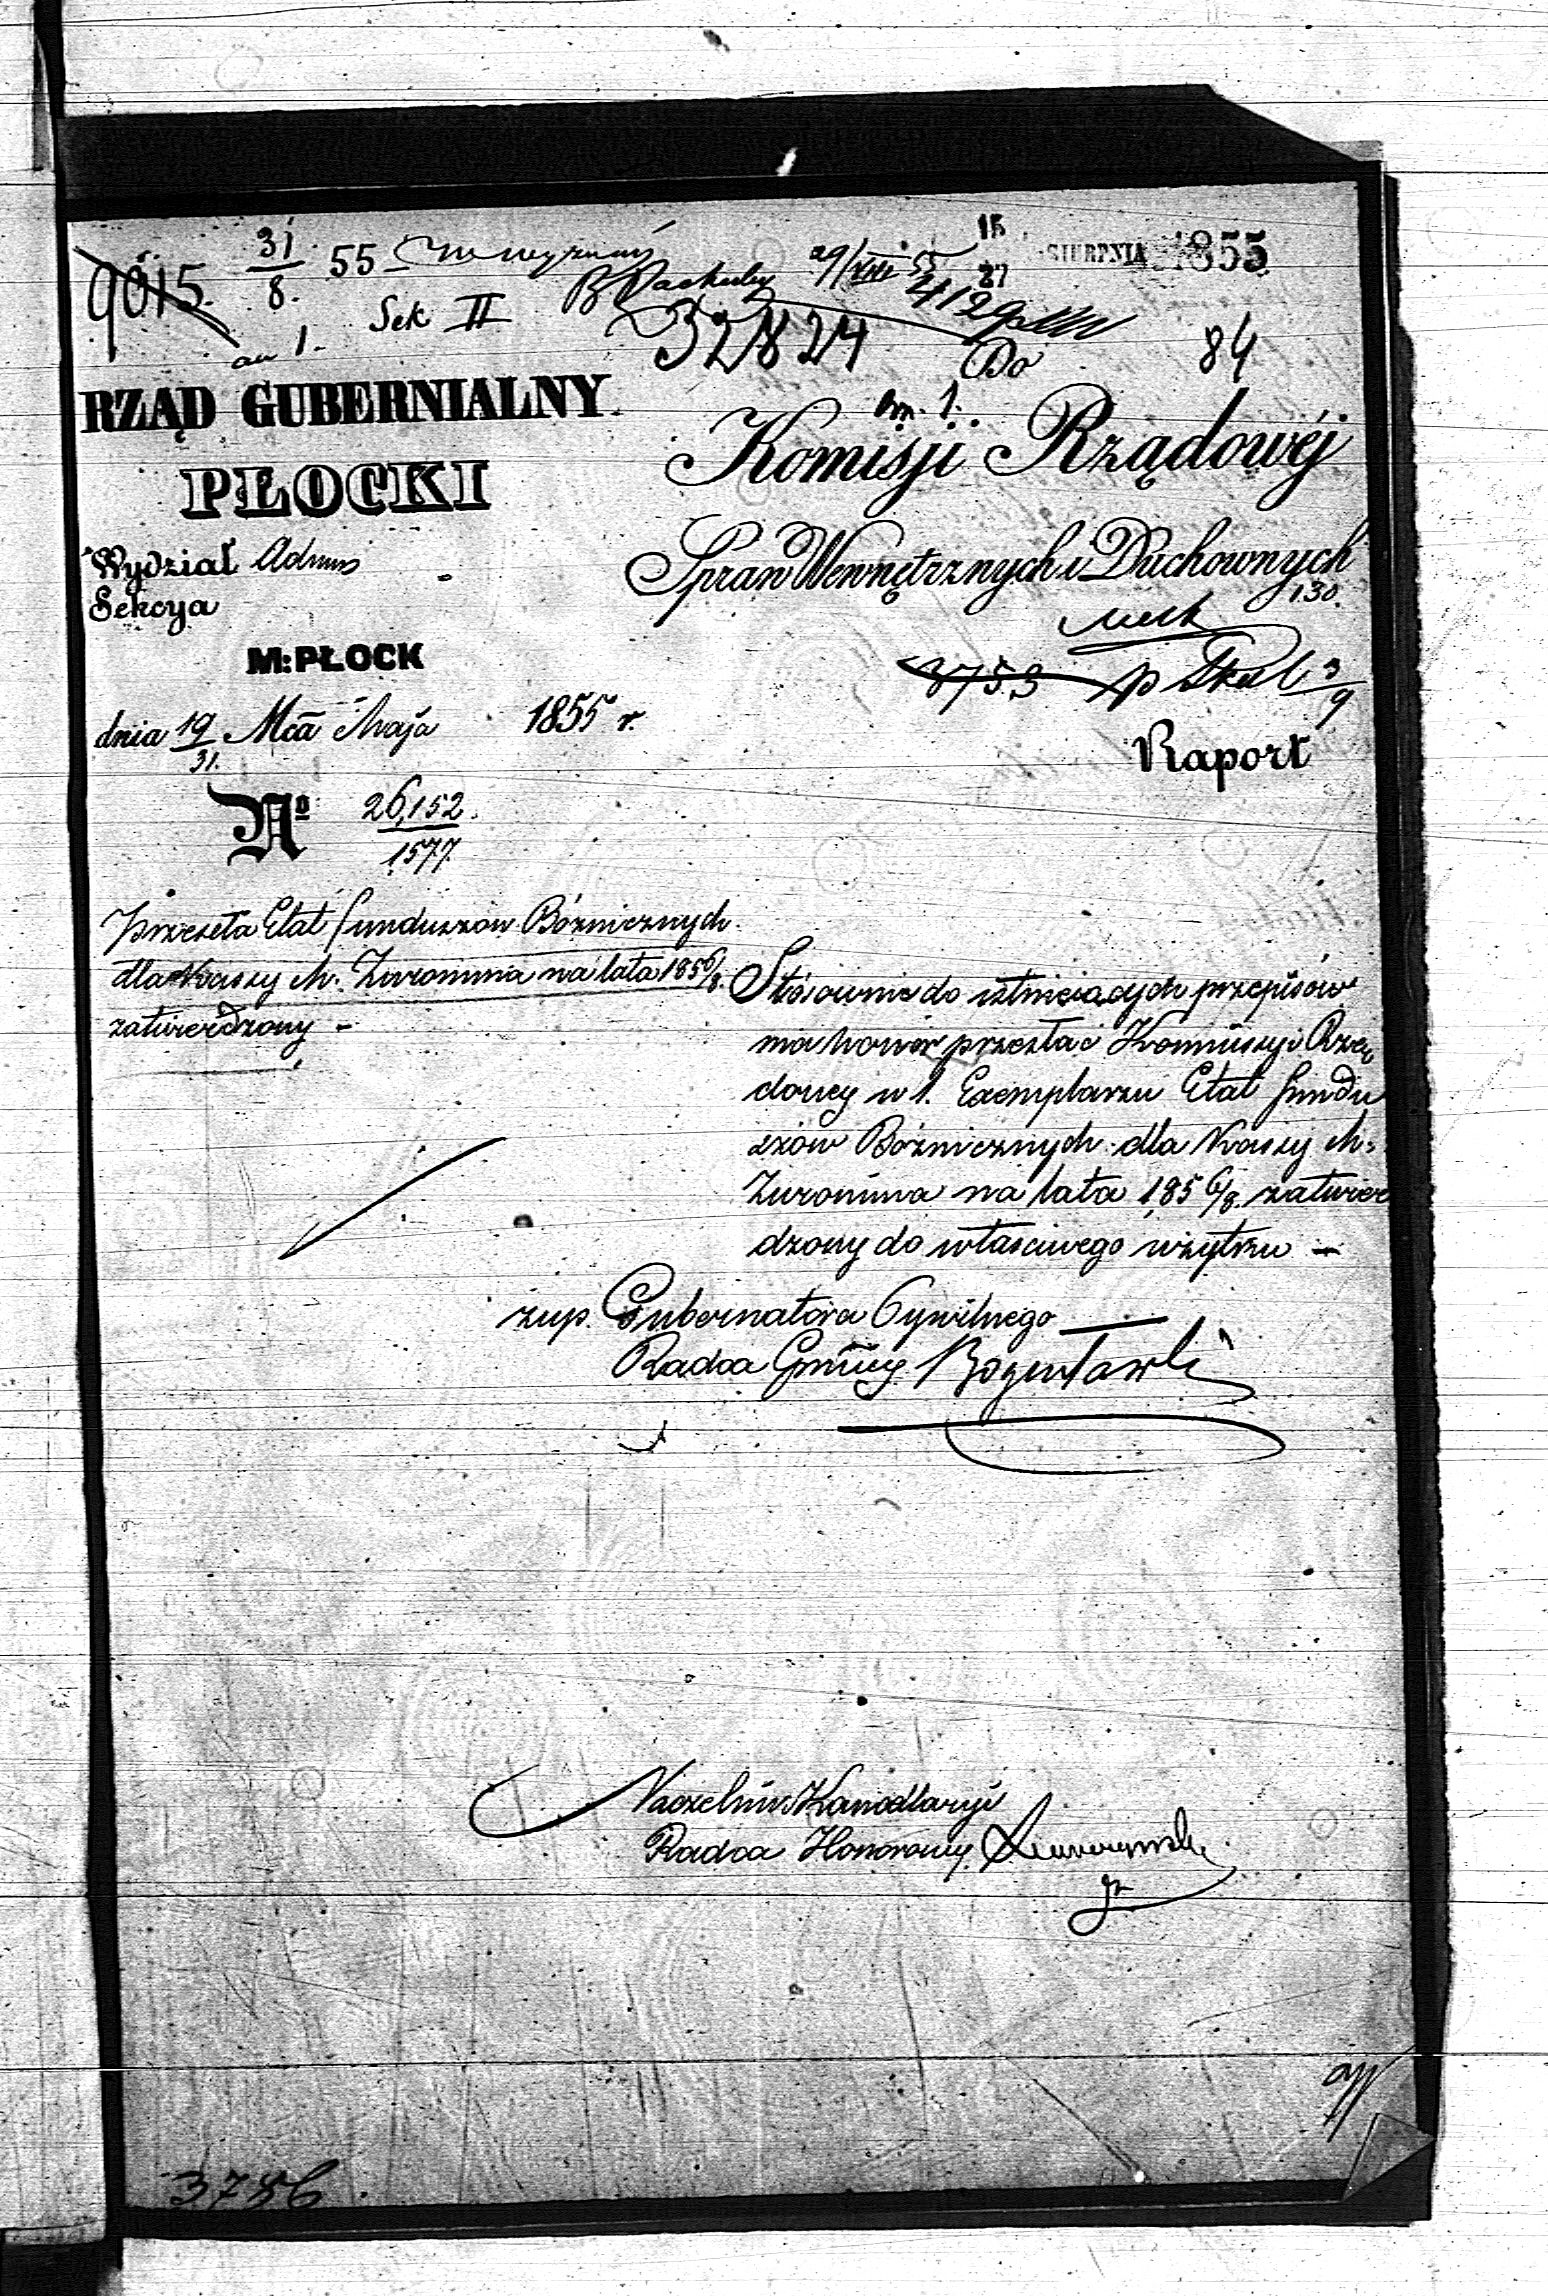 9015. 31/8. 55
Sek II
29/VIII 55
15/27 SIERPNIA 1855
32824
84
an 1.
Do
RZĄD GUBERNIALNY
PŁOCKI
Wydział Admin
Sekcya
M: PŁOCK
dnia 19/31. Mca Maja 1855 r.
No 26,152./1577.
an. 1.
Komisji Rządowéj
Spraw Wewnętrznych i Duchownych
130.
3753 3/9
Raport
Przesyła Etat funduszów Bóżnicznych
dla Kassy M. Żuromina na lata 1856/8.
zatwierdzony –
Stósownie do istnieiących przepisów
ma honor przesłać Kommissyi Rzą
dowey w 1. Exemplarzu Etat fundu
szów Bóżnicznych dla Kassy M.
Żuromina na lata 1856/8. zatwier
dzony do właściwego użytku –
zup. Gubernatora Cywilnego
Radca
Naczelnik Kancellaryi
Radca Honorowy
3756